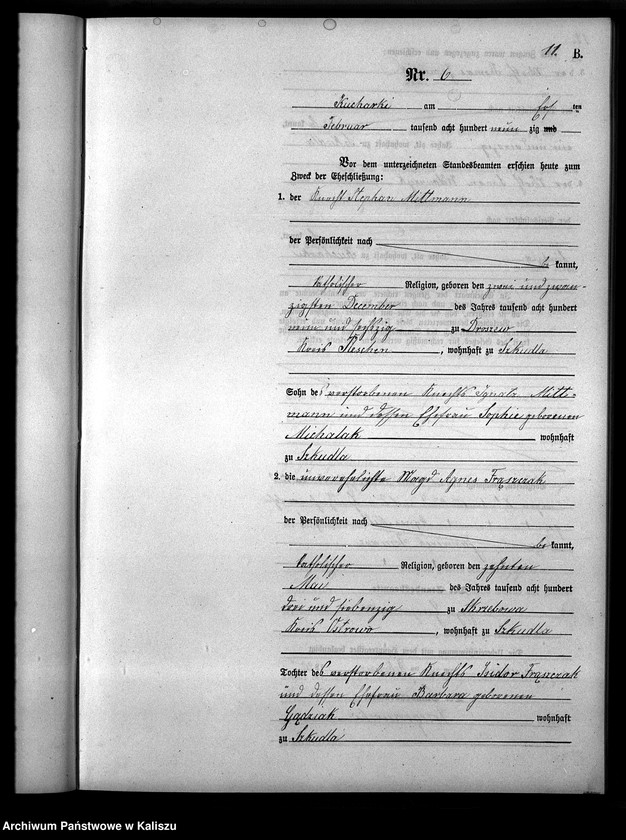 11.
B.
Nr. 6
Kucharki am ten
Februar tausend acht hundert neun zig und
Vor dem unterzeichneten Standesbeamten erschien heute zum
Zweck der Eheschließung:
1. der Knecht Stephan Mettmann
der Persönlichkeit nach
be kannt,
katholischer Religion, geboren den zwei und zwan-
zigsten December des Jahres tausend acht hundert
neun und sechszig zu Droszew
Kreis Pleschen, wohnhaft zu Szkudla
Sohn des verstorbenen Knechts Ignatz Mett-
mann und dessen Ehefrau Sophie geborenen
Michalak wohnhaft
zu Szkudla
2. die unverehelichte Magd Agnes Frąszczak
der Persönlichkeit nach
be kannt,
katholischer Religion, geboren den zehnten
Mai des Jahres tausend acht hundert
drei und siebenzig zu Skrzebowa
Kreis Ostrowo, wohnhaft zu Szkudla
Tochter des verstorbenen Knechts Isidor Frąszczak
und dessen Ehefrau Barbara geborenen
Gądziak wohnhaft
zu Szkudla
Archiwum Państwowe w Kaliszu